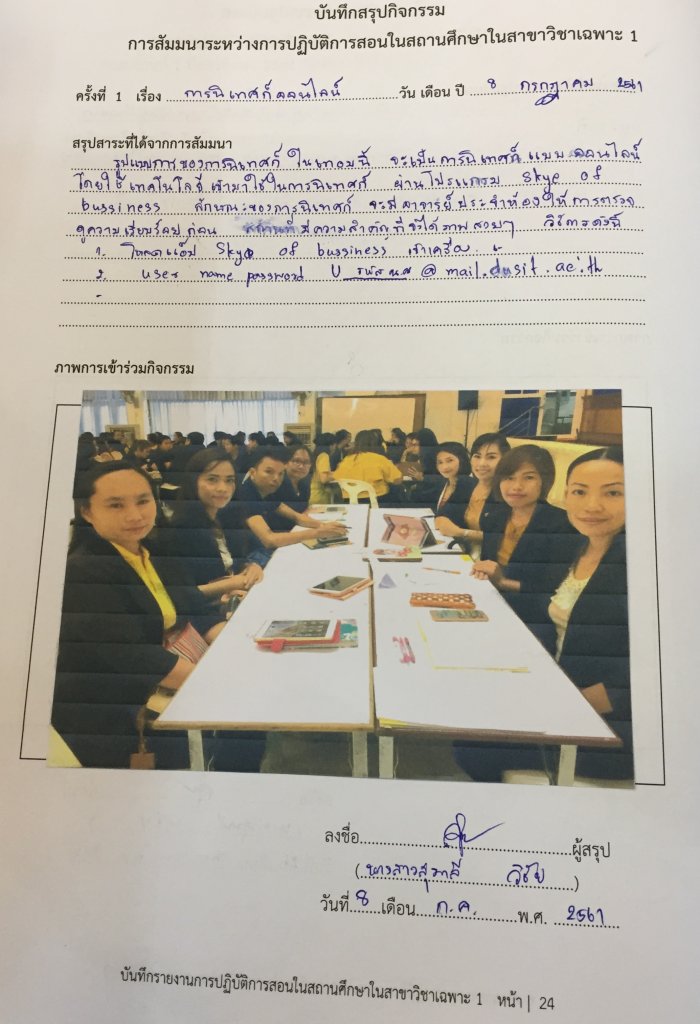 บันทึกสรุปกิจกรรม
การสัมมนาระหว่างการปฏิบัติการสอนในสถานศึกษาในสาขาวิชาเฉพาะ 1
ครั้งที่ 1 เรื่อง การนิเทศก์ออนไลน์ วัน เดือน ปี 8 กรกฎาคม 2561
สรุปสาระที่ได้จากการสัมมนา
รูปแบบการของการนิเทศก์ ในเทอมนี้ จะเป็นการนิเทศก์ แบบ ออนไลน์
โดยใช้เทคโนโลยีเข้ามาใช้ในการนิเทศก์ ผ่านโปรแกรม Skye of
bussiness ลักษณะของการนิเทศก์ จะมีอาจารย์ประจำห้องให้การตรวจ
ดูความเรียบร้อยก่อน สถานที่มีความสำคัญที่จะได้ภาพสวยๆ วิธีการดังนี้
1. โหลดแอ็ป Skye of bussiness เข้าเครื่อง
2. user name password U รหัสนศ @mail.dusit.ac.th
ภาพการเข้าร่วมกิจกรรม
ลงชื่อ ผู้สรุป
(นางสาวสุมาลี วิชัย)
วันที่ 8 เดือน ก.ค. พ.ศ. 2561
บันทึกรายงานการปฏิบัติการสอนในสถานศึกษาในสาขาวิชาเฉพาะ 1 หน้า | 24